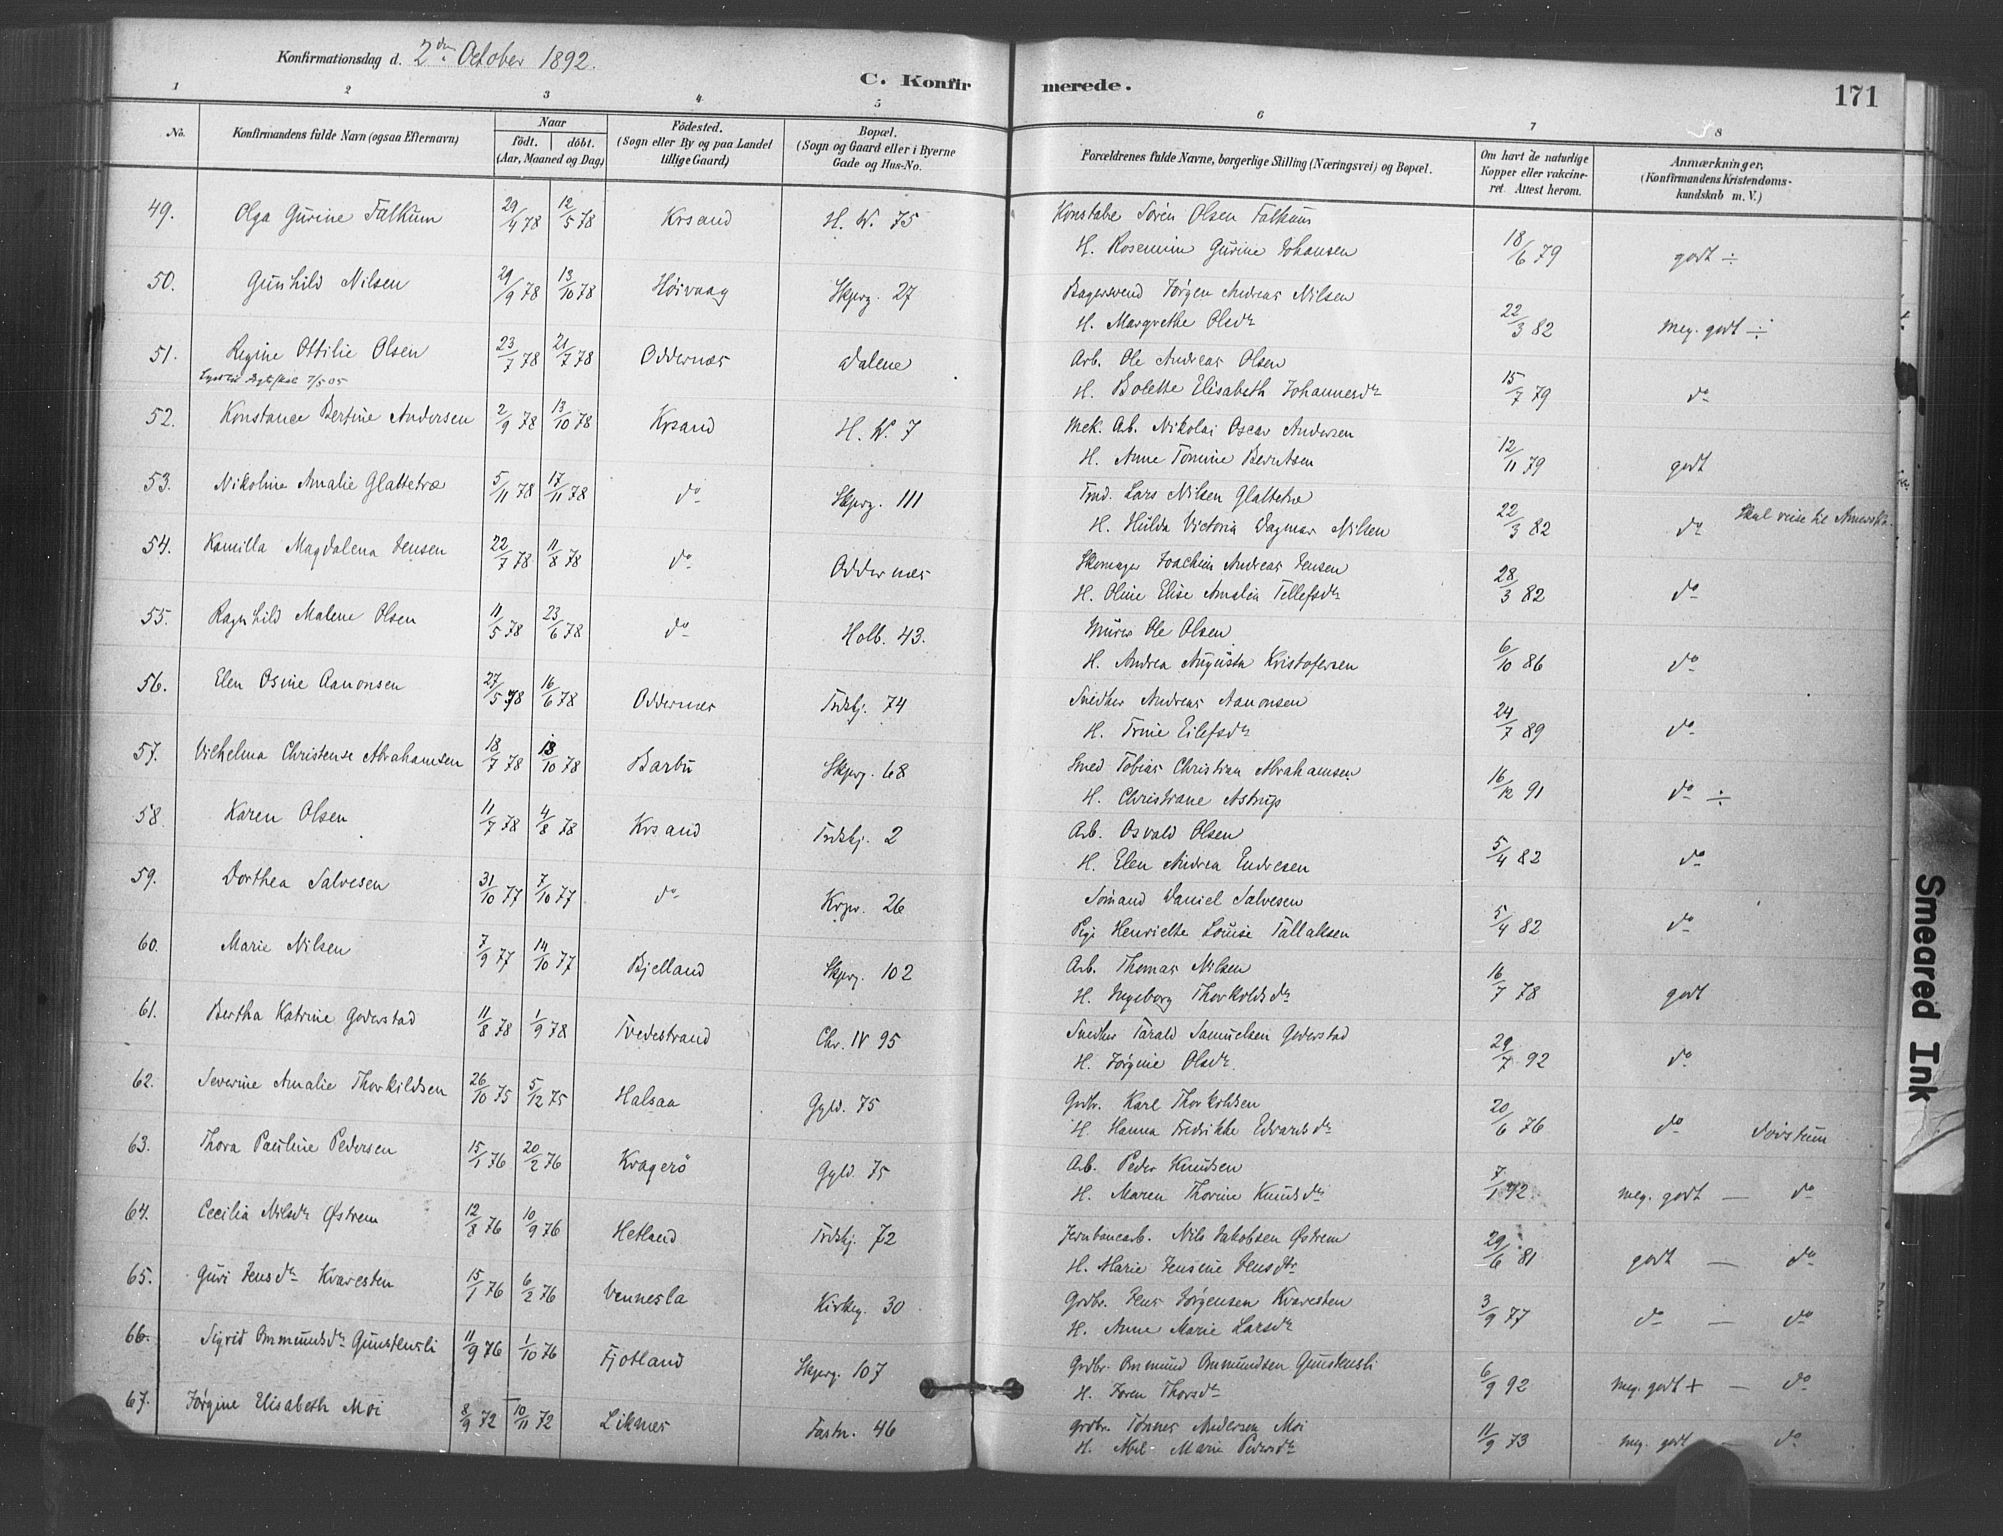 Konfirmationsdag d. 2den October 1892.
C. Konfirmerede.
171
1 2 3 4 5 6 7 8
No. Konfirmandens fulde Navn (ogsaa Efternavn) Naar født. døbt. (Aar, Maaned og Dag) Födested. (Sogn eller By og paa Landet tillige Gaard) Bopæl. (Sogn og Gaard eller i Byerne Gade og Hus-No. Forældrenes fulde Navne, borgerlige Stilling (Næringsvei) og Bopæl. Om havt de naturlige Kopper eller vakcineret. Attest herom. Anmærkninger, (Konfirmandens Kristendomskundskab m. V.)
49. Olga Gurine Falkum 29/4 78 12/5 78 Krsand H. W. 75 Konstabe Søren Olsen Falkum
H. Rosemine Gurine Johansen 18/6 79 godt ÷
50. Gunhild Nilsen 29/9 78 13/10 78 Høivaag Skperg. 27 Bagersvend Jørgen Andreas Nilsen
H. Margrethe Olsdr 22/3 82 meg. godt ÷
51. Regine Ottilie Olsen 23/7 78 21/7 78 Oddernæs Dalene Arb. Ole Andreas Olsen
7/5 05
H. Bolette Elisabeth Johannesdr 15/7 79 do
52. Konstance Bertine Andersen 2/9 78 13/10 78 Krsand H. W. 7 Mek. Arb. Nikolai Oscar Andersen
H. Anne Tomine Berntsen 12/11 79 godt
53. Nikoline Amalie Glattetræ 5/11 78 17/11 78 do Skperg. 111 Tmd. Lars Nilsen Glattetræ
H. Hulda Victoria Dagmar Nilsen 22/3 82 do Skal reise til Amerika.
54. Kamilla Magdalena Jensen 22/7 78 11/8 78 do Oddernæs Skomager Joachim Andreas Jensen
H. Oline Elise Amalia Tellefsdr 28/3 82 do
55. Ragnhild Malene Olsen 11/5 78 23/6 78 do Holb. 43. Murer Ole Olsen
H. Andrea Augusta Kristofersen 6/10 86 do
56. Elen Osine Aanonsen 27/5 78 16/6 78 Oddernæs Trdskj. 74 Snedker Andreas Aanonsen
H. Trine Eilefsdr 24/7 89 do
57. Vilhelma Christense Abrahamsen 18/7 78 13/10 78 Barbu Skperg. 68 Smed Tobias Christian Abrahamsen
H. Christiane Astrup 16/12 91 do ÷
58. Karen Olsen 11/7 78 4/8 78 Krsand Trdskj. 2 Arb. Osvald Olsen
H. Elen Andrea Endresen 5/4 82 do
59. Dorthea Salvesen 31/10 77 7/10 77 do Krpr. 26 Sømand Daniel Salvesen
Pige Henriette Louise Tallaksen 5/4 82 do
60. Marie Nilsen 7/9 77 14/10 77 Bjelland Skperg. 102 Arb. Thomas Nilsen
H. Ingeborg Thorkildsdr 16/7 78 godt
61. Bertha Katrine Goderstad 11/8 78 1/9 78 Tvedestrand Chr. IV 95 Snedker Tarald Samuelsen Goderstad
H. Jørgine Olsdr. 29/7 92 do
62. Severine Amalie Thorkildsen 26/10 75 5/12 75 Halsaa Gyld. 75 Grdbr. Karl Thorkildsen
H. Hanna Fredrikke Edvardsdr 20/6 76 do
63. Thora Pauline Pedersen 15/1 76 20/2 76 Kragerø Gyld. 75 Arb. Peder Knudsen
H. Maren Thorine Knudsdr 7/1 92 meg. godt — do
64. Cecilia Nilsdr Østrem 12/8 76 10/9 76 Hetland Trdskj. 72 Jernbanearb. Nils Jakobsen Østrem
H. Marie Jensine Jensdtr 29/6 81 godt — do
65. Guri Jensdr Kvaresten 15/1 76 6/2 76 Vennesla Kirkeg. 30 Grdbr. Jens Jørgensen Kvaresten
H. Anne Marie Larsdr 3/9 77 do — do
66. Sigrid Ommundsdr Gunstensli 11/9 76 1/10 76 Fjotland Skperg. 107 Grdbr. Ommund Ommundsen Gunstensli
H. Joren Thorsdr 6/9 92 meg. godt + — do
67. Jørgine Elisabeth Moi 8/9 72 10/11 72 Liknæs Fastn. 46 Grdbr. Tønnes Andersen Moi
H. Abel Marie Pedersdr 11/9 73 meg. godt — do
Smeared Ink